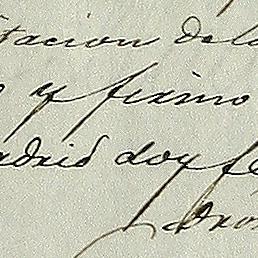 tacion de la
y firmo
adrid doy fé